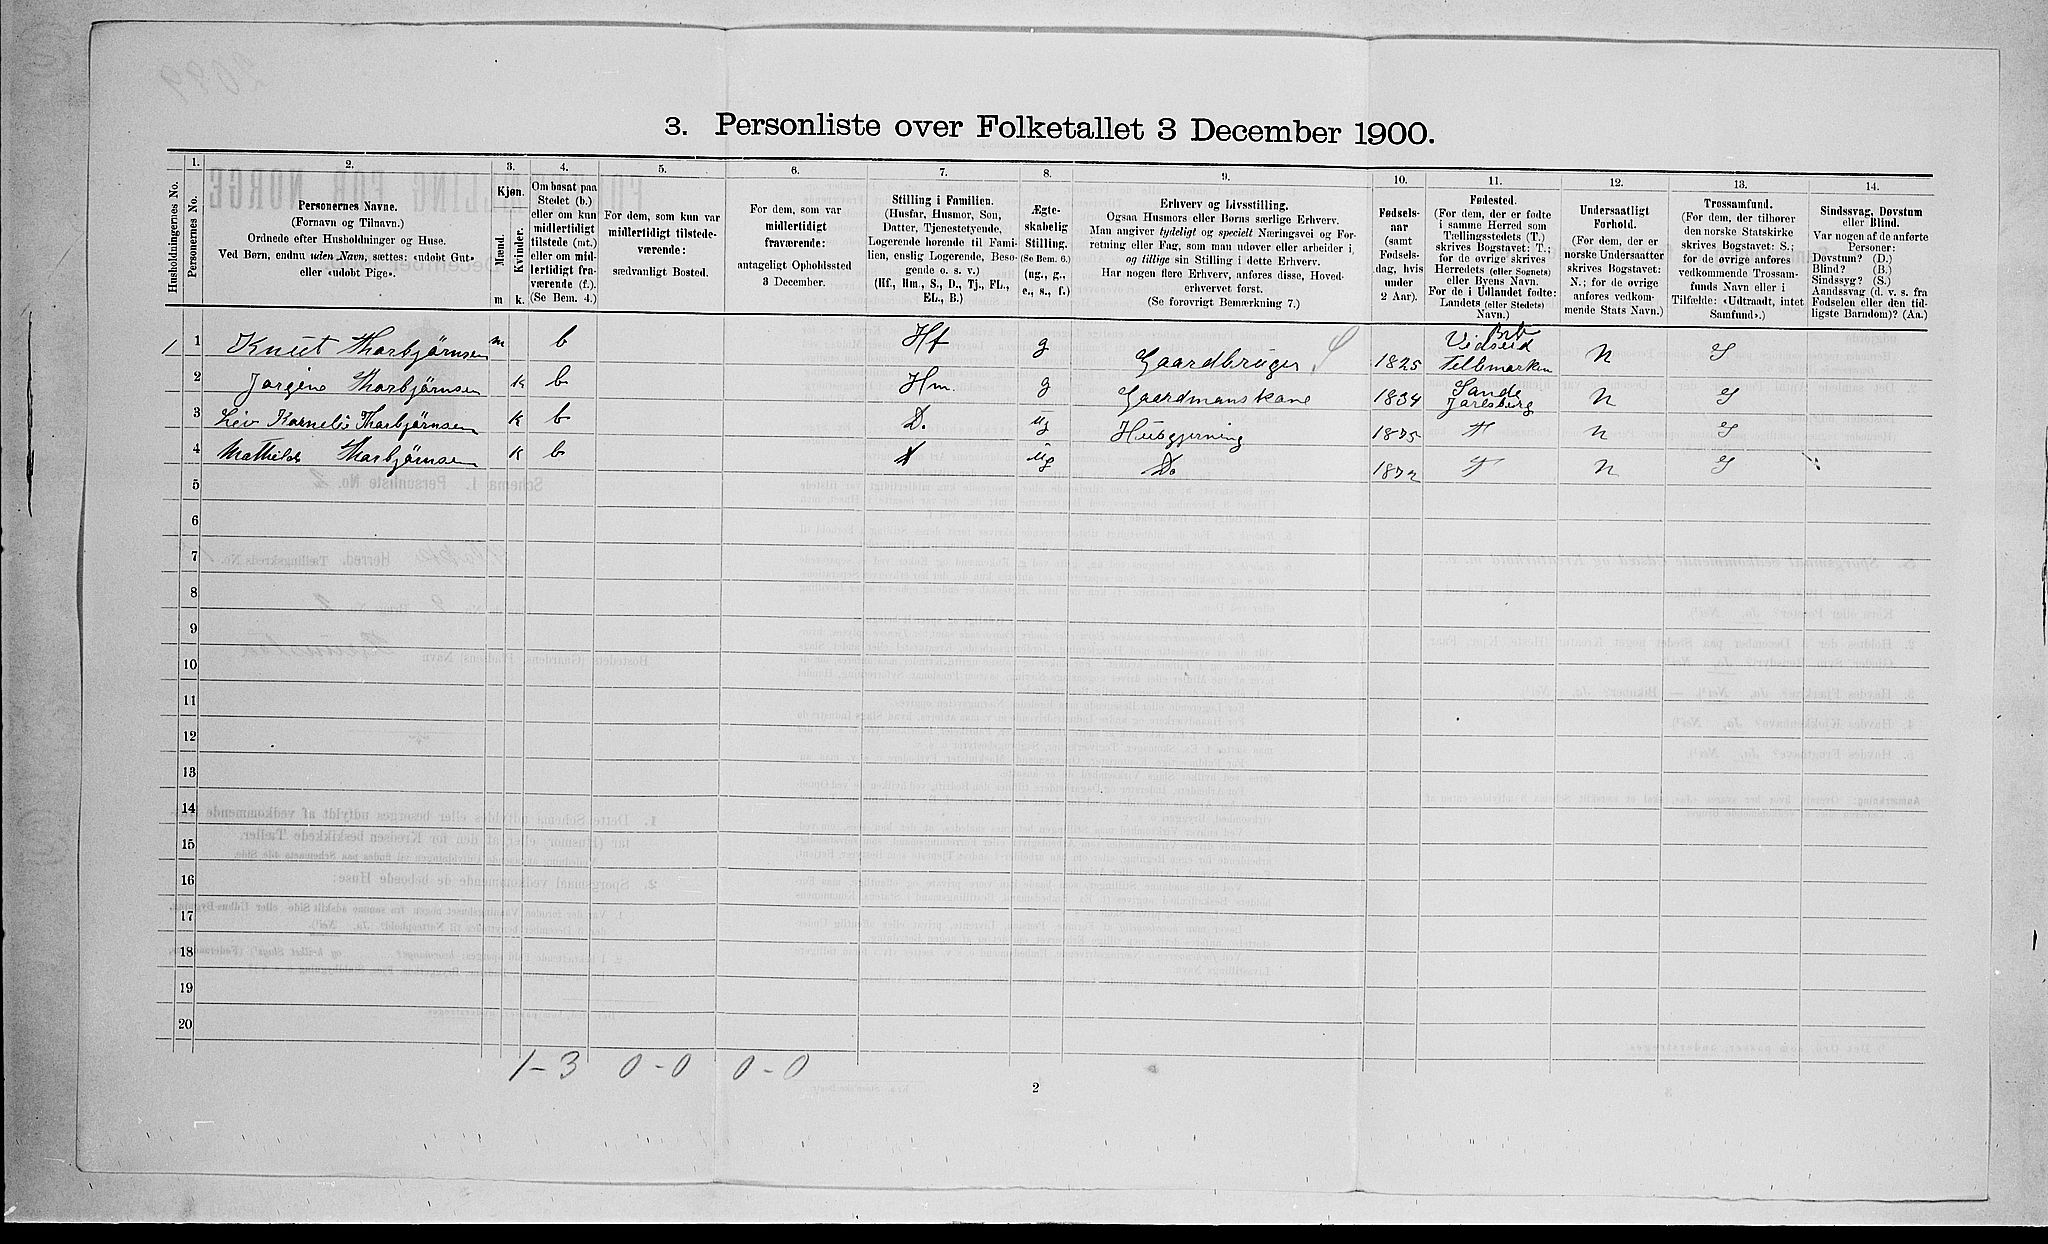 3. Personliste over Folketallet 3 December 1900.
1. 2. 3. 4. 5. 6. 7. 8. 9. 10. 11. 12. 13. 14.
Husholdningernes No.
Personernes No.
Personernes Navne.
(Fornavn og Tilnavn.)
Ordnede efter Husholdninger og Huse.
Ved Børn, endnu uden Navn, sættes: «udøbt Gut»
eller «udøbt Pige».
Kjøn.
Mænd.
Kvinder.
m k.
Om bosat paa
Stedet (b.)
eller om kun
midlertidigt
tilstede (mt.)
eller om mid-
lertidigt fra-
værende (f.).
(Se Bem. 4.)
For dem, som kun var
midlertidigt tilstede-
værende:
sædvanligt Bosted.
For dem, som var
midlertidigt
fraværende:
antageligt Opholdssted
3 December.
Stilling i Familien.
(Husfar, Husmor, Søn,
Datter, Tjenestetyende,
Logerende hørende til Fami-
lien, enslig Logerende, Besø-
gende o. s. v.)
(Hf., Hm., S., D., Tj., FL.,
EL., B.)
Ægte-
skabelig
Stilling.
(Se Bem. 6.)
(ug., g.,
e., s., f.)
Erhverv og Livsstilling.
Ogsaa Husmors eller Børns særlige Erhverv.
Man angiver tydeligt og specielt Næringsvei og For-
retning eller Fag, som man udøver eller arbeider i,
og tillige sin Stilling i dette Erhverv.
Har nogen flere Erhverv, anføres disse, Hoved-
erhvervet først.
(Se forøvrigt Bemærkning 7.)
Fødsels-
aar
(samt
Fødsels-
dag, hvis
under
2 Aar).
Fødested.
(For dem, der er fødte
i samme Herred som
Tællingsstedets (T.)
skrives Bogstavet: T.;
for de øvrige skrives
Herredets (eller Sognets)
eller Byens Navn.
For de i Udlandet fødte:
Landets (eller Stedets)
Navn.)
Undersaatligt
Forhold.
(For dem, der er
norske Undersaatter
skrives Bogstavet:
N.; for de øvrige
anføres vedkom-
mende Stats Navn.)
Trossamfund.
(For dem, der tilhører
den norske Statskirke
skrives Bogstavet: S.;
for de øvrige anføres
vedkommende Trossam-
funds Navn eller i
Tilfælde: «Udtraadt, intet
Samfund».)
Sindssvag, Døvstum
eller Blind.
Var nogen af de anførte
Personer:
Døvstum? (D.)
Blind? (B.)
Sindssyg? (S.)
Aandssvag (d. v. s. fra
Fødselen eller den tid-
ligste Barndom)? (Aa.)
1 1 Knut Thorbjörnsen m b Hf g Gaardbruger 1825 Vidseid Telemarken N S
2 Jorgine Thorbjörnsen K b Hm. g Gaardmanskone 1834 Sande Jarlsberg N S
3 Liv Kornelie Thorbjörnsen K b D. ug Husgjerning 1875 T N S
4 Mathilde Thorbjörnsen K b D ug Do 1872 T N S
5
6
7
8
9
10
11
12
13
14
15
16
17
18
19
20
1-3 0-0 0-0
2